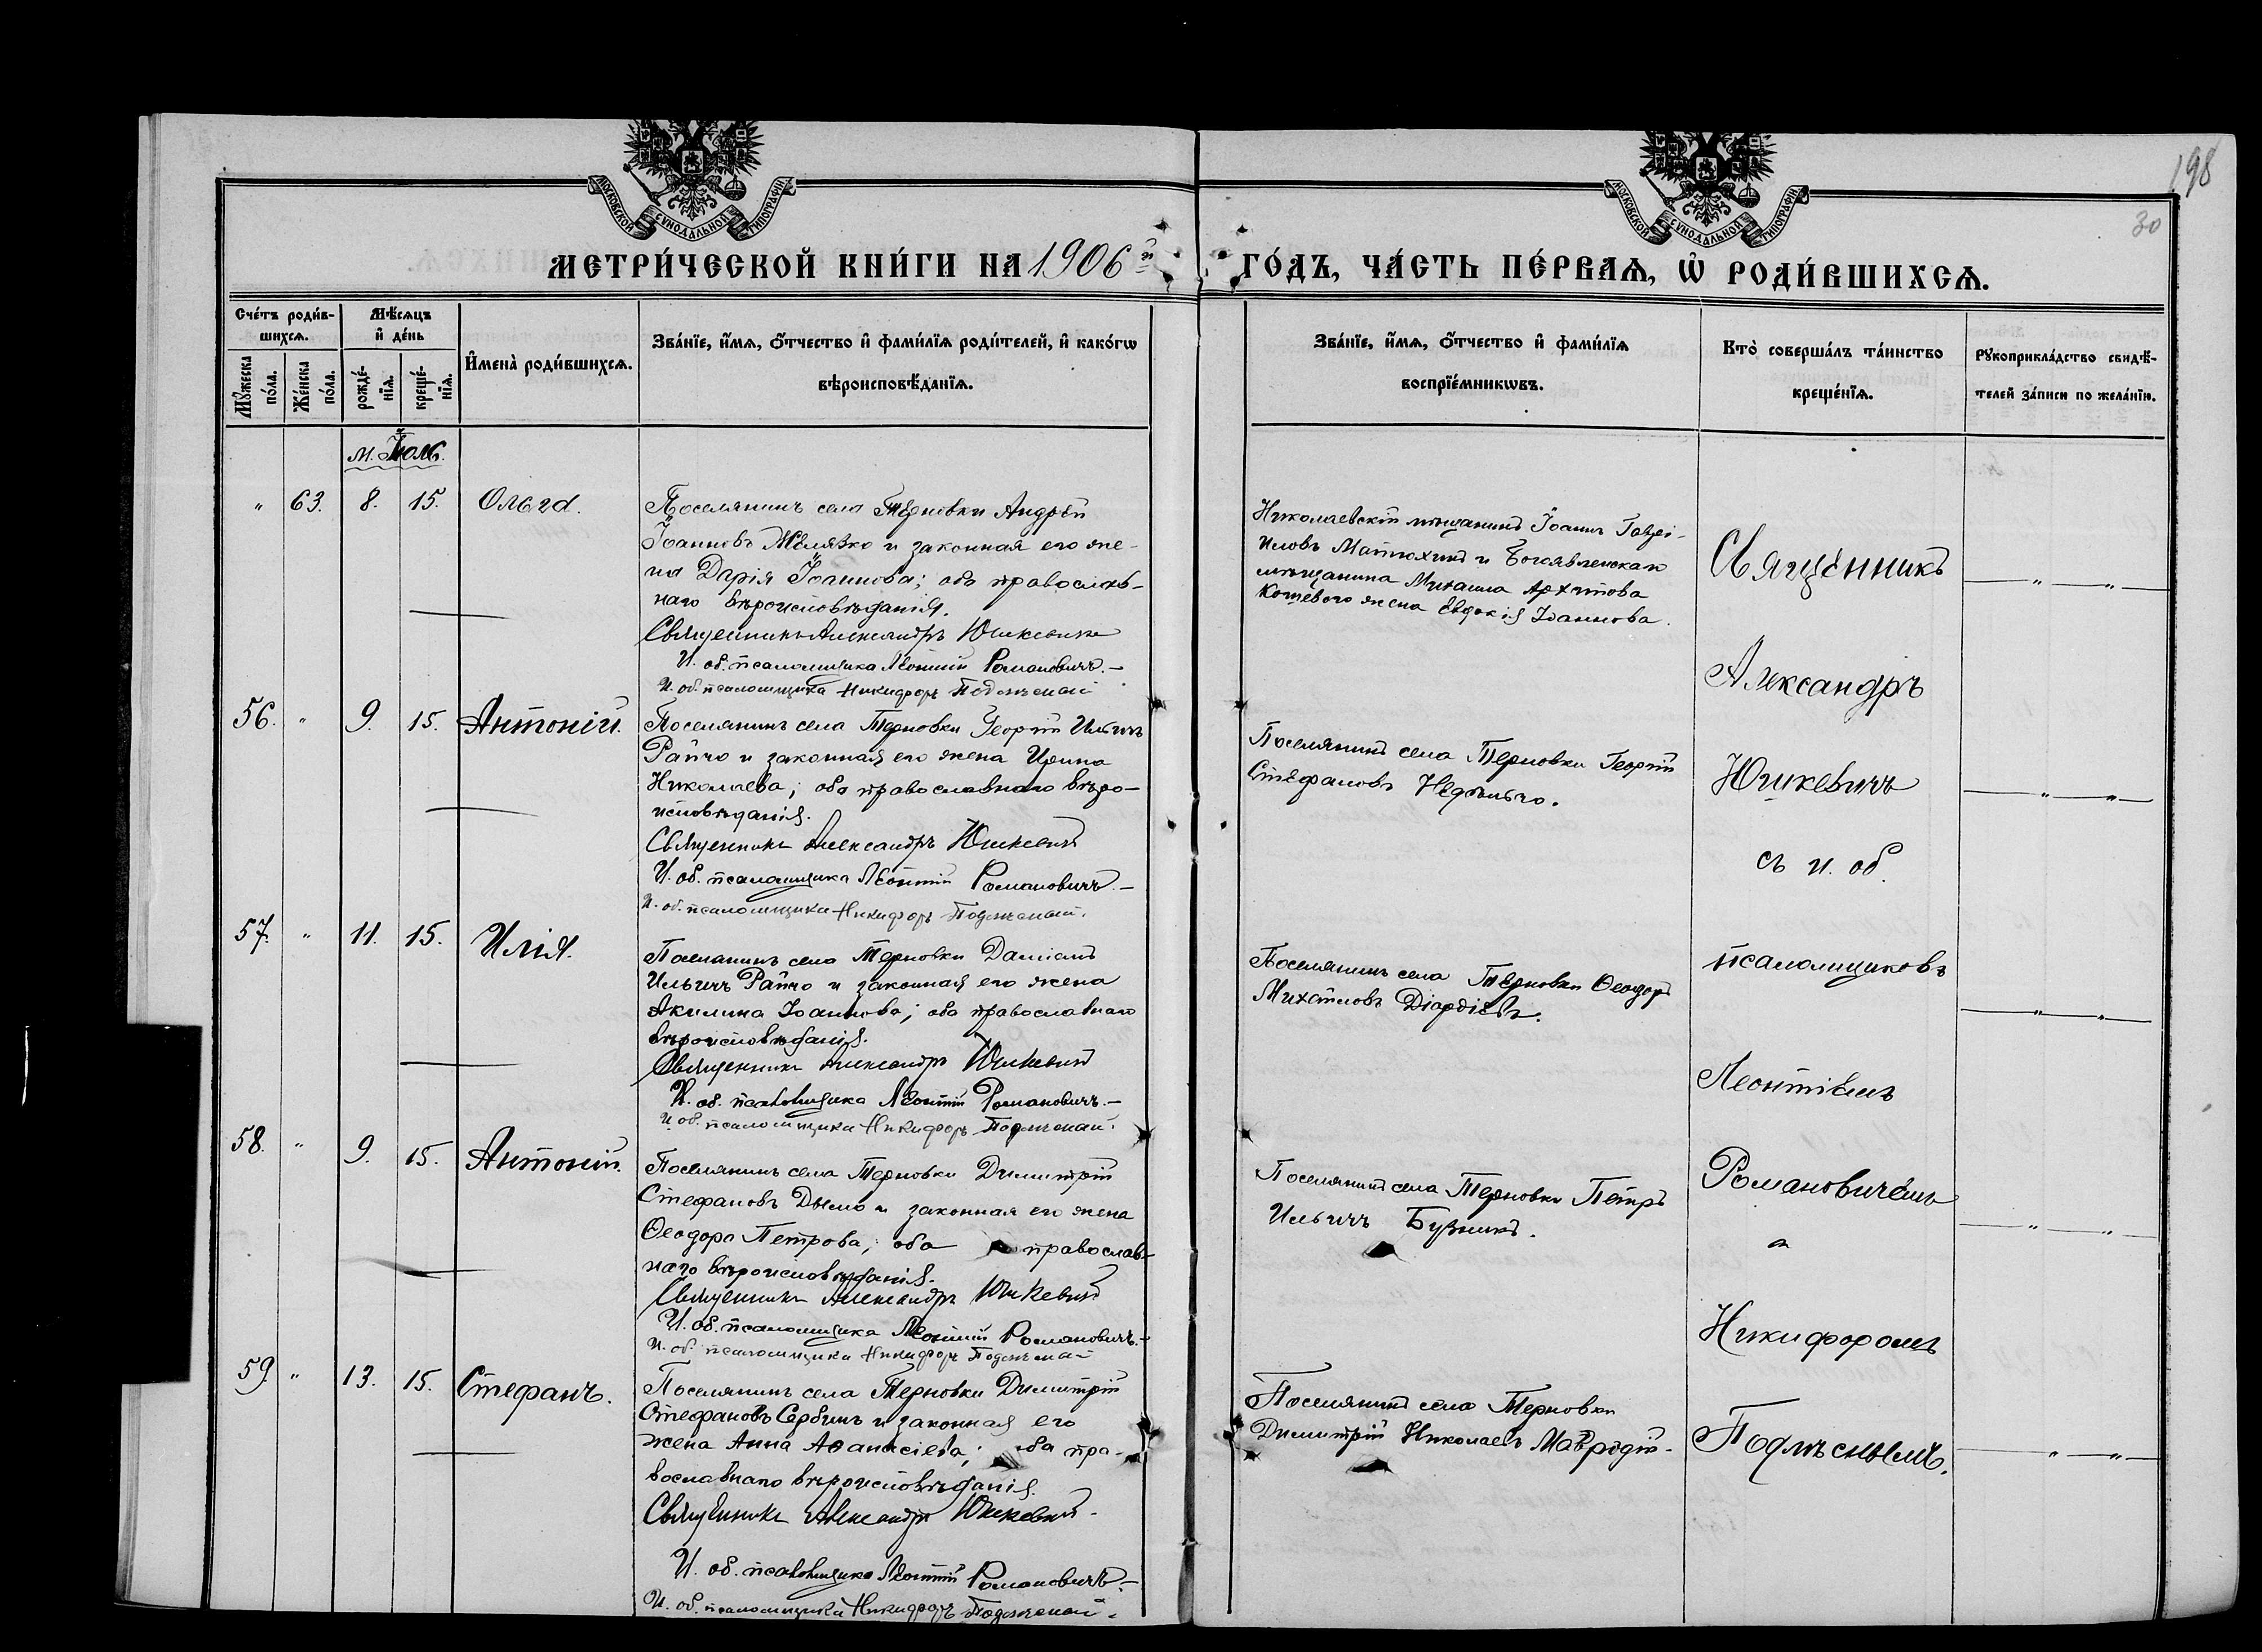 198
30
МОСКОВСКОЙ СѴНОДАЛЬНОЙ ТИПОГРАФІИ
МОСКОВСКОЙ СѴНОДАЛЬНОЙ ТИПОГРАФІИ
МЕТРИ́ЧЕСКОЙ КНИ́ГИ НА 1906й ГО́ДЪ, ЧА́СТЬ ПЕ́РВАѦ, Ѡ҆ РОДИ́ВШИХСѦ.
Сче́тъ роди́в-
шихсѧ.
Мꙋ́жеска по́ла.
Же́нска по́ла.
Мѣ́сѧцъ
и҆ де́нь
рожде́-
нїѧ.
креще́-
нїѧ.
И҆мена̀ роди́вшихсѧ.
Зва́нїе, и҆́мѧ, ѻ҆́тчество и҆ фами́лїѧ роди́телей, и҆ како́гѡ
вѣроисповѣ́данїѧ.
Зва́нїе, и҆́мѧ, ѻ҆́тчество и҆ фами́лїѧ
воспрїе́мникѡвъ.
Кто̀ соверша́лъ та́инство
креще́нїѧ.
Рꙋкоприкла́дство свидѣ́-
телей за́писи по жела́нїю.
м. Іюль.
„ 63. 8. 15. Ольга.
Поселянинъ села Терновки Андрей
Іоанновъ и законная его же-
на Дарія Іоаннова; оба православ-
наго вѣроисповѣданія.
Священникъ Александръ Юшкевичъ
И. об. псаломщика Леонтій Романовичъ.—
И. об. псаломщика Никифоръ Подлѣсный
Николаевскій мѣщанинъ Іоаннъ Гаврі-
иловъ Матюхинъ и Богоявленскаго
мѣщанина Михаила Архипова
Кошевого жена Евдокія Іоаннова.
— „ — „ —
56. „ 9. 15. Антоній.
Поселянинъ села Терновки Георгій Ильичъ
Райчо и законная его жена Ирина
Николаева; оба православнаго вѣро-
исповѣданія.
Священникъ Александръ Юшкевичъ
И. об. псаломщика Леонтій Романовичъ.—
И. об. псаломщика Никифоръ Подлѣсный.
Поселянинъ села Терновки Георгій
Стефановъ Недѣльчо.
— „ — „ —
57. „ 11. 15. Илія.
Поселянинъ села Терновки Даміанъ
Ильичъ Райчо и законная его жена
Акилина Іоаннова; оба православнаго
вѣроисповѣданія.
Священникъ Александръ Юшкевичъ
И. об. псаломщика Леонтій Романовичъ.—
И. об. псаломщика Никифоръ Подлѣсный.
Поселянинъ села Терновки Ѳеодоръ
Михайловъ
— „ — „ —
58. „ 9. 15. Антоній.
Поселянинъ села Терновки Димитрій
Стефановъ Дымо и законная его жена
Ѳеодора Петрова; оба православ-
наго вѣроисповѣданія.
Священникъ Александръ Юшкевичъ
И. об. псаломщика Леонтій Романовичъ.—
И. об. псаломщика Никифоръ Подлѣсный
Поселянинъ села Терновки Петръ
Ильичъ Бузникъ.
— „ — „ —
59. „ 13. 15. Стефанъ.
Поселянинъ села Терновки Димитрій
Стефановъ Сербинъ и законная его
жена Анна Аѳанасіева; оба пра-
вославнаго вѣроисповѣданія.
Священникъ Александръ Юшкевичъ.
И. об. псаломщика Леонтій Романовичъ.—
И. об. псаломщика Никифоръ Подлѣсный.
Поселянинъ села Терновки
Димитрій Николаевъ Мавродій.
— „ — „ —
Священникъ
Александръ
Юшкевичъ
съ и. об.
псаломщиковъ
Леонтіемъ
Романовичемъ
и
Никифоромъ
Подлѣснымъ.